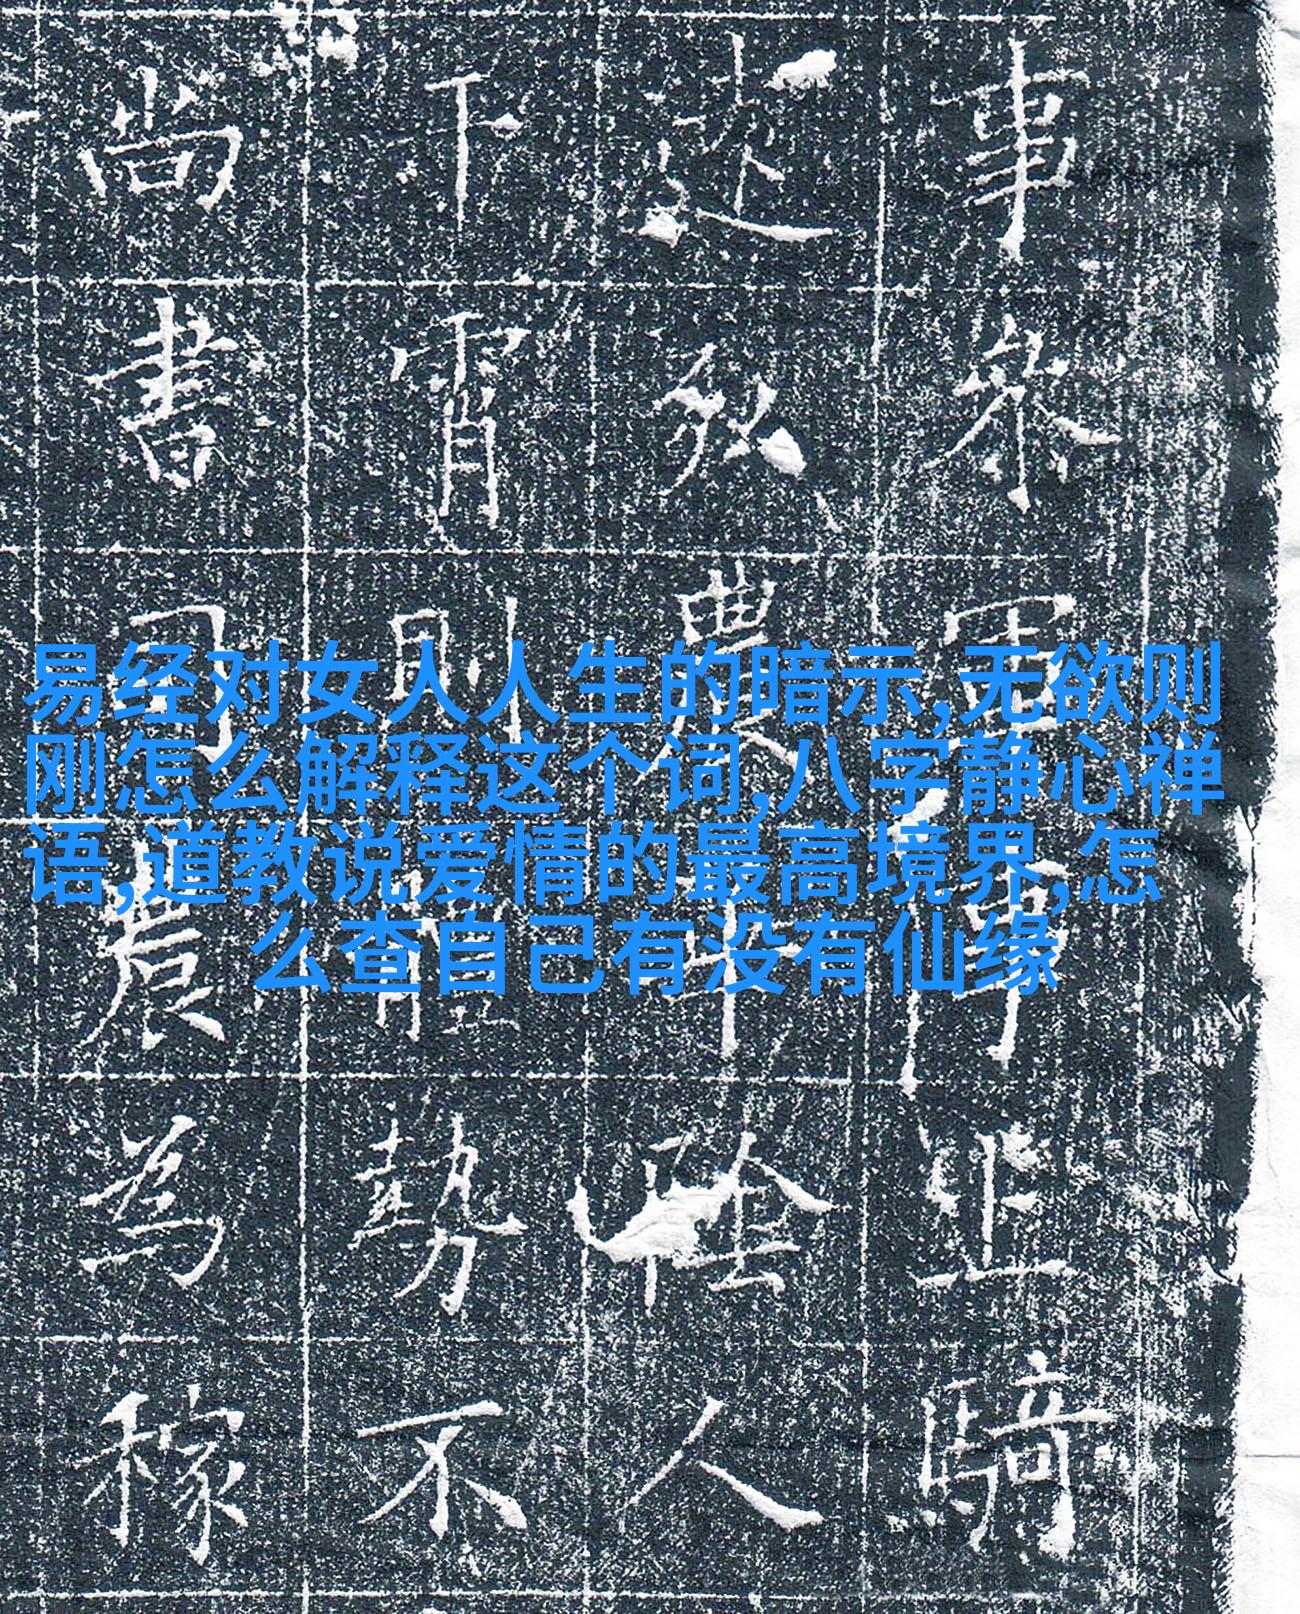 易经对女人人生的暗示,无欲则
刚怎么解释这个词,八字静心禅
语,道教说爱情的最高境界,怎
么查自己有没有仙缘
事騎
農陰人
下霄則體勢不
尚書司農為稼